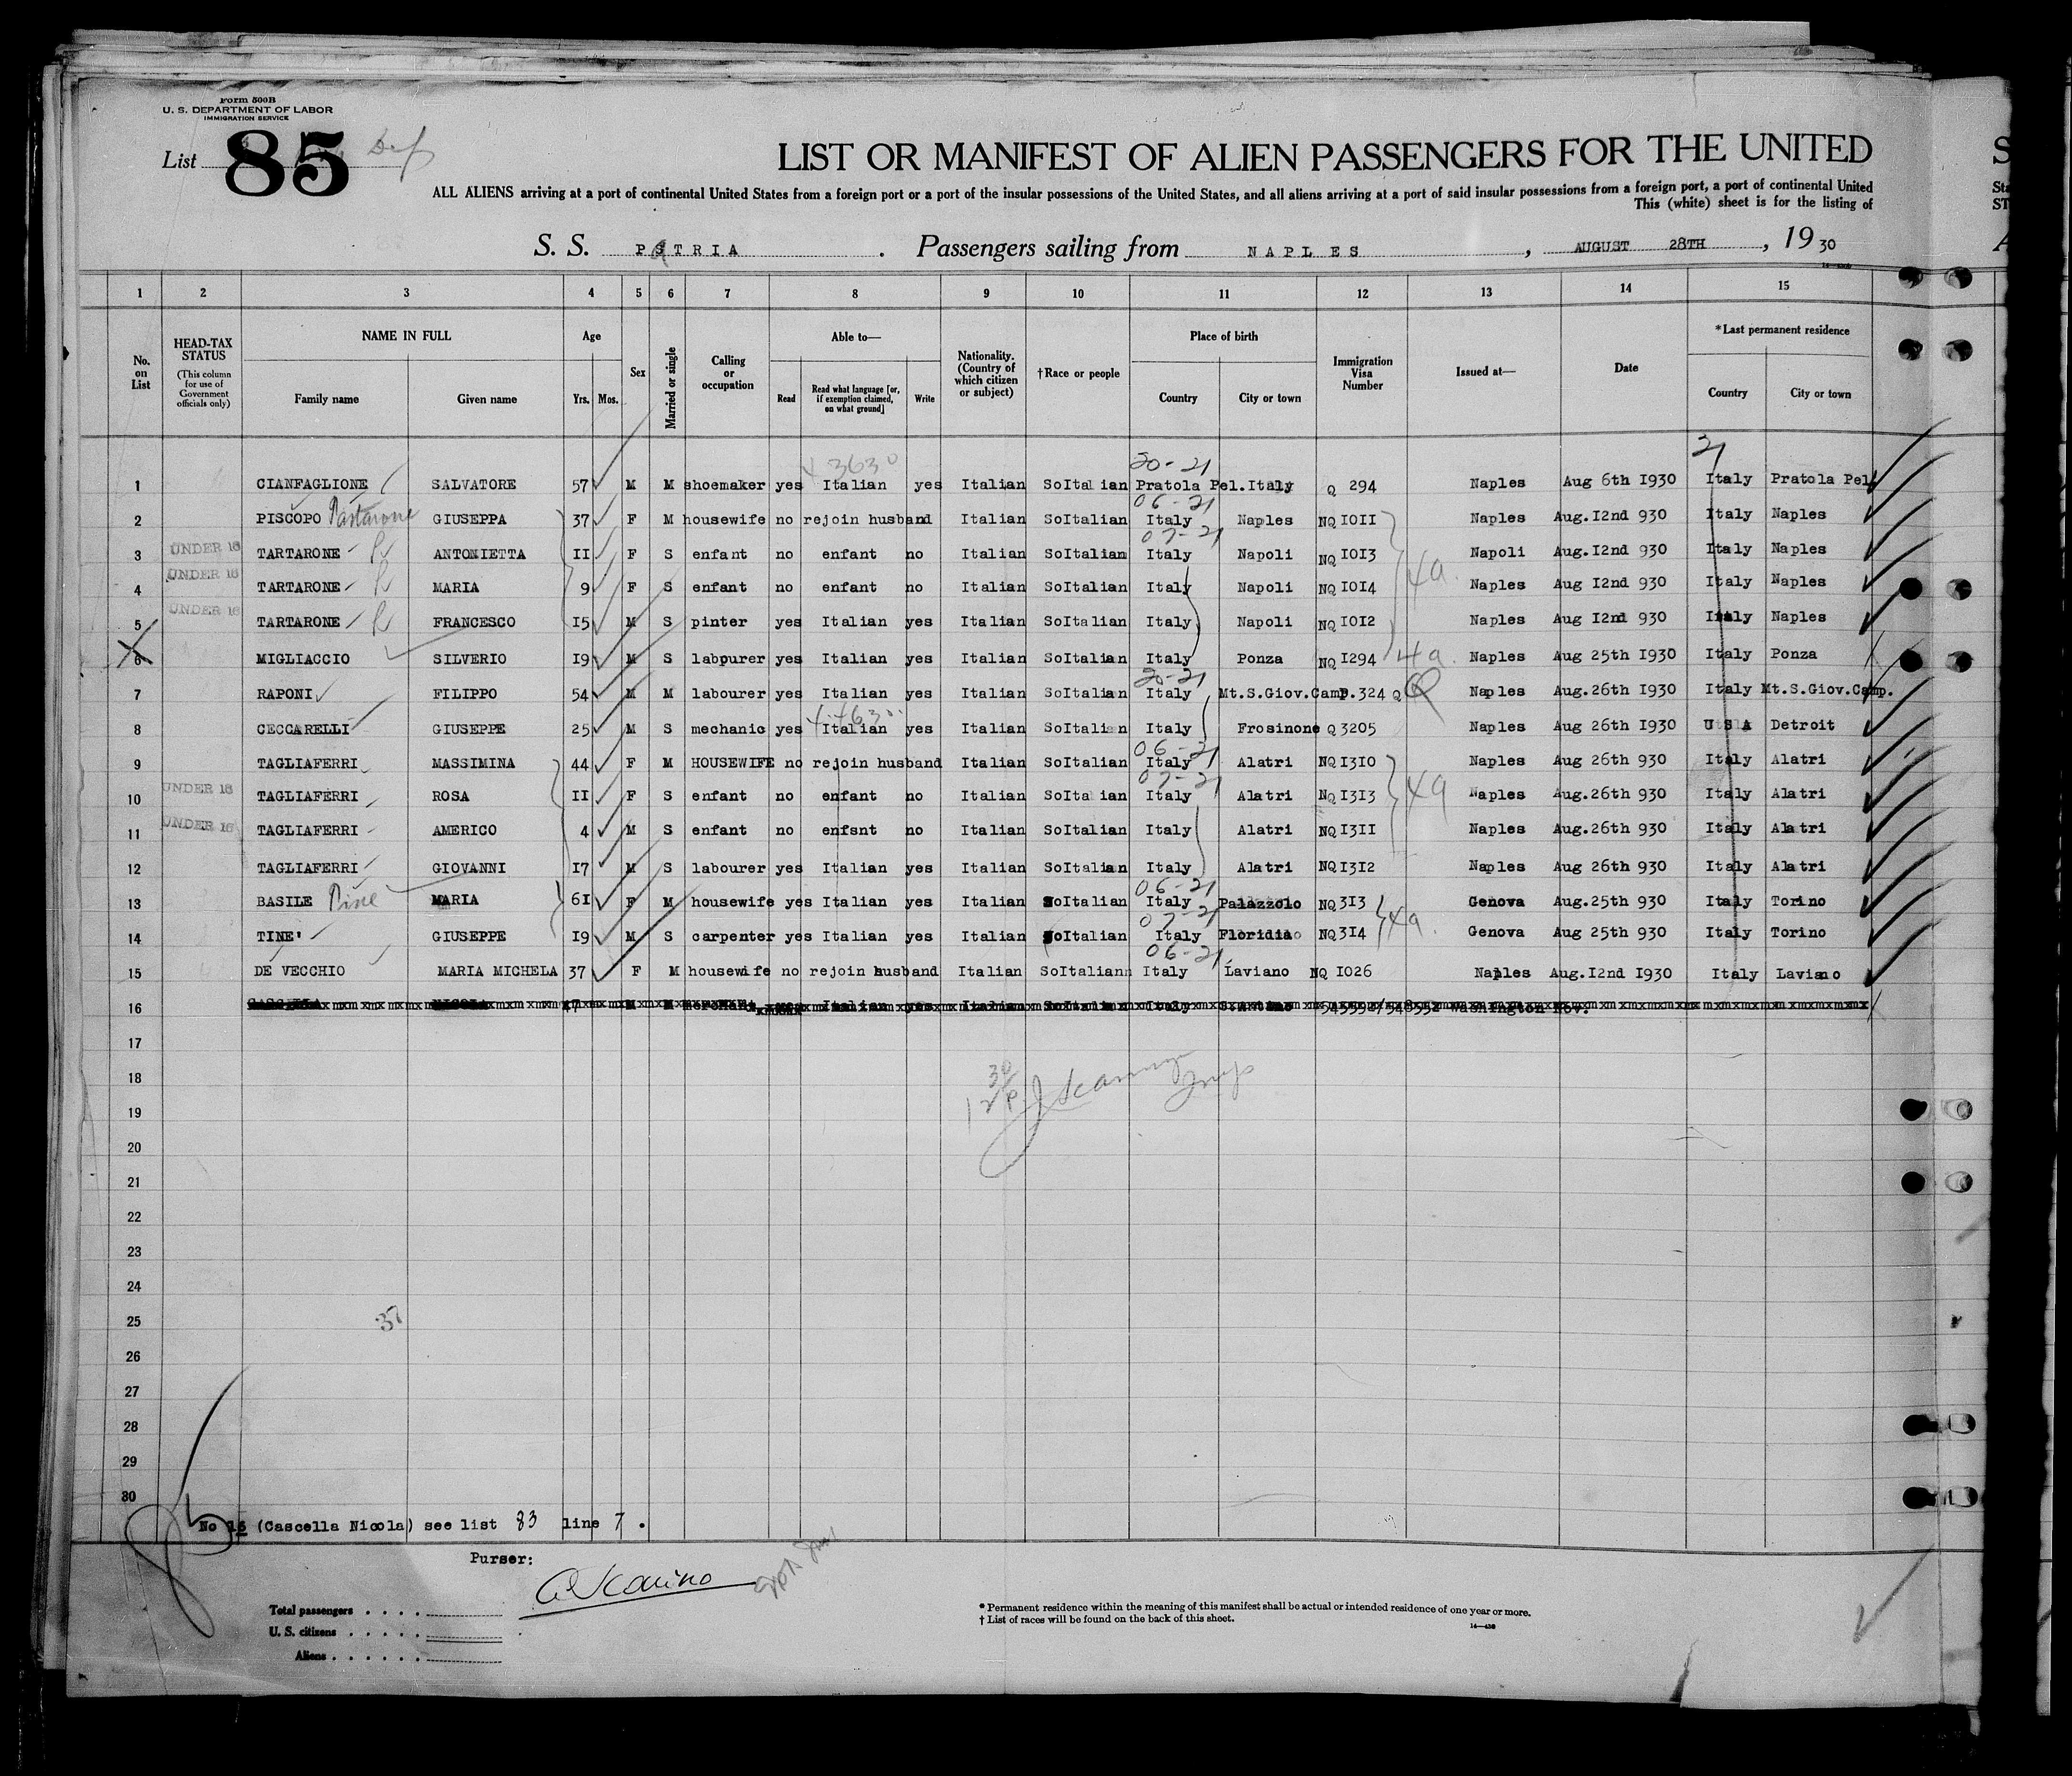 Form 500B
U. S. DEPARTMENT OF LABOR
IMMIGRATION SERVICE
List 85
LIST OR MANIFEST OF ALIEN PASSENGERS FOR THE UNITED
ALL ALIENS arriving at a port of continental United States from a foreign port or a port of the insular possessions of the United States, and all aliens arriving at a port of said insular possessions from a foreign port, a port of continental United
This (white) sheet is for the listing of
S. S. PATRIA . Passengers sailing from NAPLES , AUGUST 28TH , 19 30
1 2 3 4 5 6 7 8 9 10 11 12 13 14 15
No. on List
HEAD-TAX STATUS (This column for use of Government officials only)
NAME IN FULL
Family name Given name
Age
Yrs. Mos.
Sex
Married or single
Calling or occupation
Able to—
Read
Read what language [or, if exemption claimed, on what ground]
Write
Nationality. (Country of which citizen or subject)
†Race or people
Place of birth
Country City or town
Immigration Visa Number
Issued at—
Date
*Last permanent residence
Country City or town
43630 20-21 21
1 CIANFAGLIONE SALVATORE 57 M M shoemaker yes Italian yes Italian SoItalian Pratola Pel.Italy Q 294 Naples Aug 6th 1930 Italy Pratola Pel
06-21
2 PISCOPO Tartarone GIUSEPPA 37 F M housewife no rejoin husband Italian SoItalian Italy Naples NQ IOII Naples Aug.I2nd 930 Italy Naples
07-21
3 UNDER 16 TARTARONE ANTONIETTA II F S enfant no enfant no Italian SoItalian Italy Napoli NQ IOI3 Napoli Aug.I2nd 930 Italy Naples
4 UNDER 16 TARTARONE MARIA 9 F S enfant no enfant no Italian SoItalian Italy Napoli NQ IOI4 4a Naples Aug I2nd 930 Italy Naples
5 UNDER 16 TARTARONE FRANCESCO I5 M S pinter yes Italian yes Italian SoItalian Italy Napoli NQ IOI2 Naples Aug I2nd 930 Italy Naples
6 MIGLIACCIO SILVERIO I9 M S labpurer yes Italian yes Italian SoItalian Italy Ponza NQ I294 4a Naples Aug 25th I930 Italy Ponza
20-21
7 RAPONI FILIPPO 54 M M labourer yes Italian yes Italian SoItalian Italy Mt.S.Giov.Camp. 324 Q Q Naples Aug.26th I930 Italy Mt.S.Giov.Camp.
8 CECCARELLI GIUSEPPE 25 M S mechanic yes Italian yes Italian SoItalian Italy Frosinone Q 3205 Naples Aug 26th I930 U S A Detroit
06-21
9 TAGLIAFERRI MASSIMINA 44 F M HOUSEWIFE no rejoin husband Italian SoItalian Italy Alatri NQ I3IO Naples Aug 26th 930 Italy Alatri
07-21
10 UNDER 16 TAGLIAFERRI ROSA II F S enfant no enfant no Italian SoItalian Italy Alatri NQ I3I3 4a Naples Aug.26th 930 Italy Alatri
11 UNDER 16 TAGLIAFERRI AMERICO 4 M S enfant no enfsnt no Italian SoItalian Italy Alatri NQ I3II Naples Aug.26th 930 Italy Alatri
12 TAGLIAFERRI GIOVANNI I7 M S labourer yes Italian yes Italian SoItalian Italy Alatri NQ I3I2 Naples Aug 26th 930 Italy Alatri
06-21
13 BASILE MARIA 6I F M housewife yes Italian yes Italian SoItalian Italy Palazzolo NQ 3I3 Genova Aug.25th 930 Italy Torino
07-21
14 TINE' GIUSEPPE I9 M S carpenter yes Italian yes Italian SoItalian Italy Floridia NQ 3I4 4a Genova Aug 25th 930 Italy Torino
06-21
15 DE VECCHIO MARIA MICHELA 37 F M housewife no rejoin husband Italian SoItaliann Italy Laviano NQ I026 Naples Aug.I2nd I930 Italy Laviano
16
17
18
19
20
21
22
23
24
25 37
26
27
28
29
30
No 16 (Cascella Nicola) see list 83 line 7 .
Purser:
Total passengers
U. S. citizens
Aliens
* Permanent residence within the meaning of this manifest shall be actual or intended residence of one year or more.
† List of races will be found on the back of this sheet.